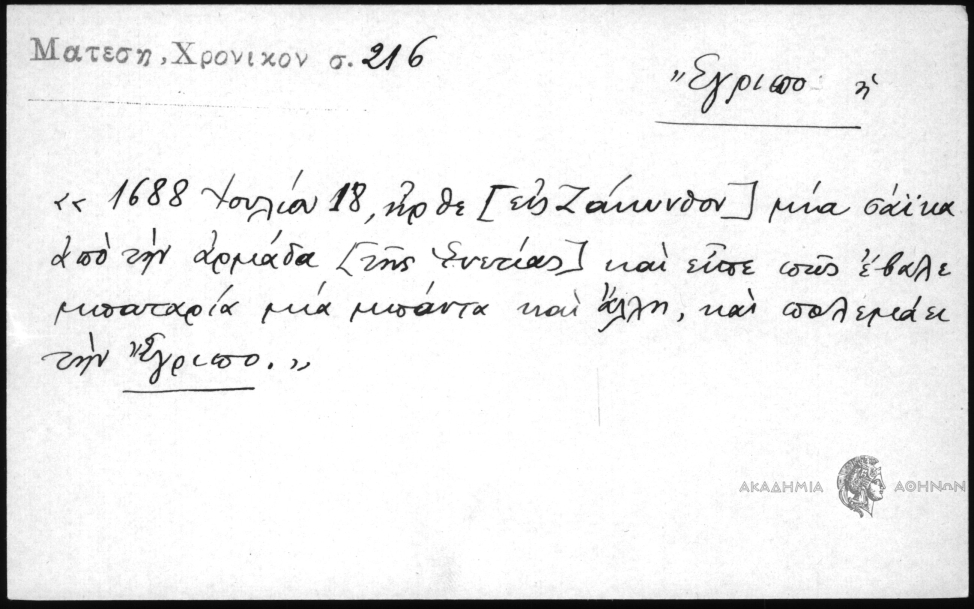 Ματεση, Χρονικον σ. 216
Ἔγριπο ἡ
« 1688 Ἰουλίου 18, ἦρθε [εἰς Ζάκυνθον] μία σάϊκα
ἀπὸ τὴν ἀρμάδα [τῆς Ἑνετίας] καὶ εἶπε πῶς ἔβαλε
μπαταρία μία μπάντα καὶ ἄλλη, καὶ πολεμάει
τὴν Ἔγριπο. »
ΑΚΑΔΗΜΙΑ ΑΘΗΝΩΝ